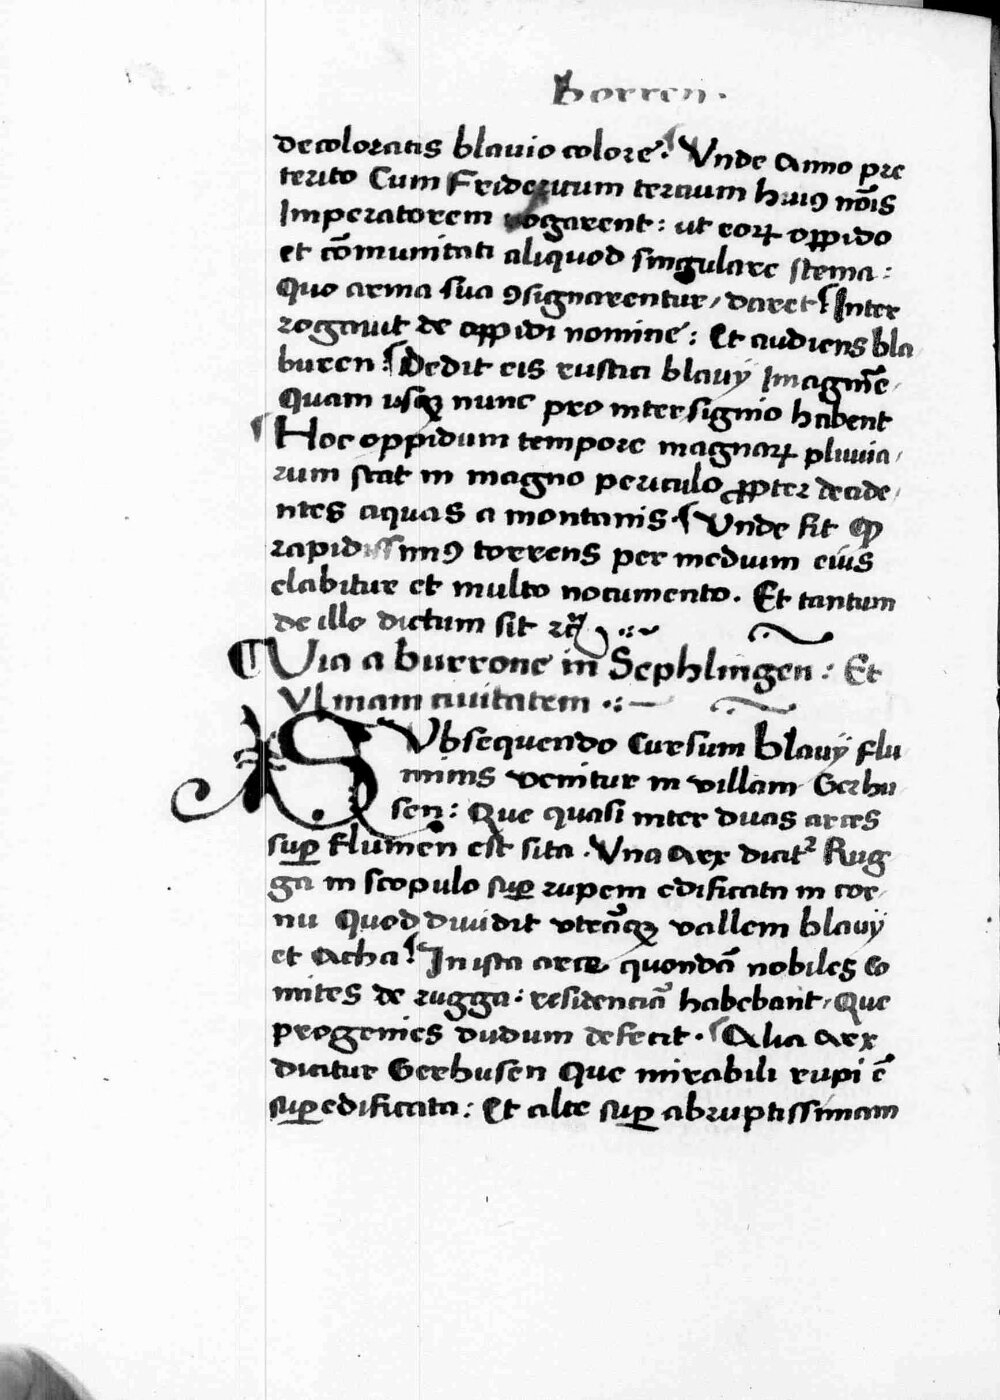 horren.
decoloratis blauio colore. Vnde Anno pre
terito Cum Fridericum tercium huiꝰ nōis
Imperatorem rogarent: ut eorꝝ oppido
et cōmunitati aliquod singulare stema:
Quo arma sua ꝯsignarentur, daret. Inter
rogauit de oppidi nomine: Et audiens bla
buren: Dedit eis rustici blauÿ Imaginē,
Quam usqꝫ nunc pro intersignio habent
Hoc oppidum tempore magnarꝝ pluuia,
rum stat in magno periculo ꝓpter decide,
ntes aquas a montanis. Vnde fit ꝙ
rapidissimꝰ torrens per medium eius
elabitur et multo nocumento. Et tantum
de illo dictum sit ꝛc̄
Via a burrone in Sephlingen: Et
Vlmam ciuitatem
SVbsequendo Cursum blauÿ flu
minis venitur in villam Gerhu
sen: Que quasi inter duas arces
suꝑ flumen est sita. Vna Arx dicitᵣ Rug
ga in scopulo suꝑ rupem edificata in cor,
nu Quod diuidit vtrāqꝫ vallem blauÿ
et Acha. In ista arce quondā nobiles Co
mites de rugga: residenciā habebant, Que
progenies dudum defecit. Alia Arx
dicitur Gerhusen Que mirabili rupi ē
suꝑedificata: Et alte suꝑ abruptissimam